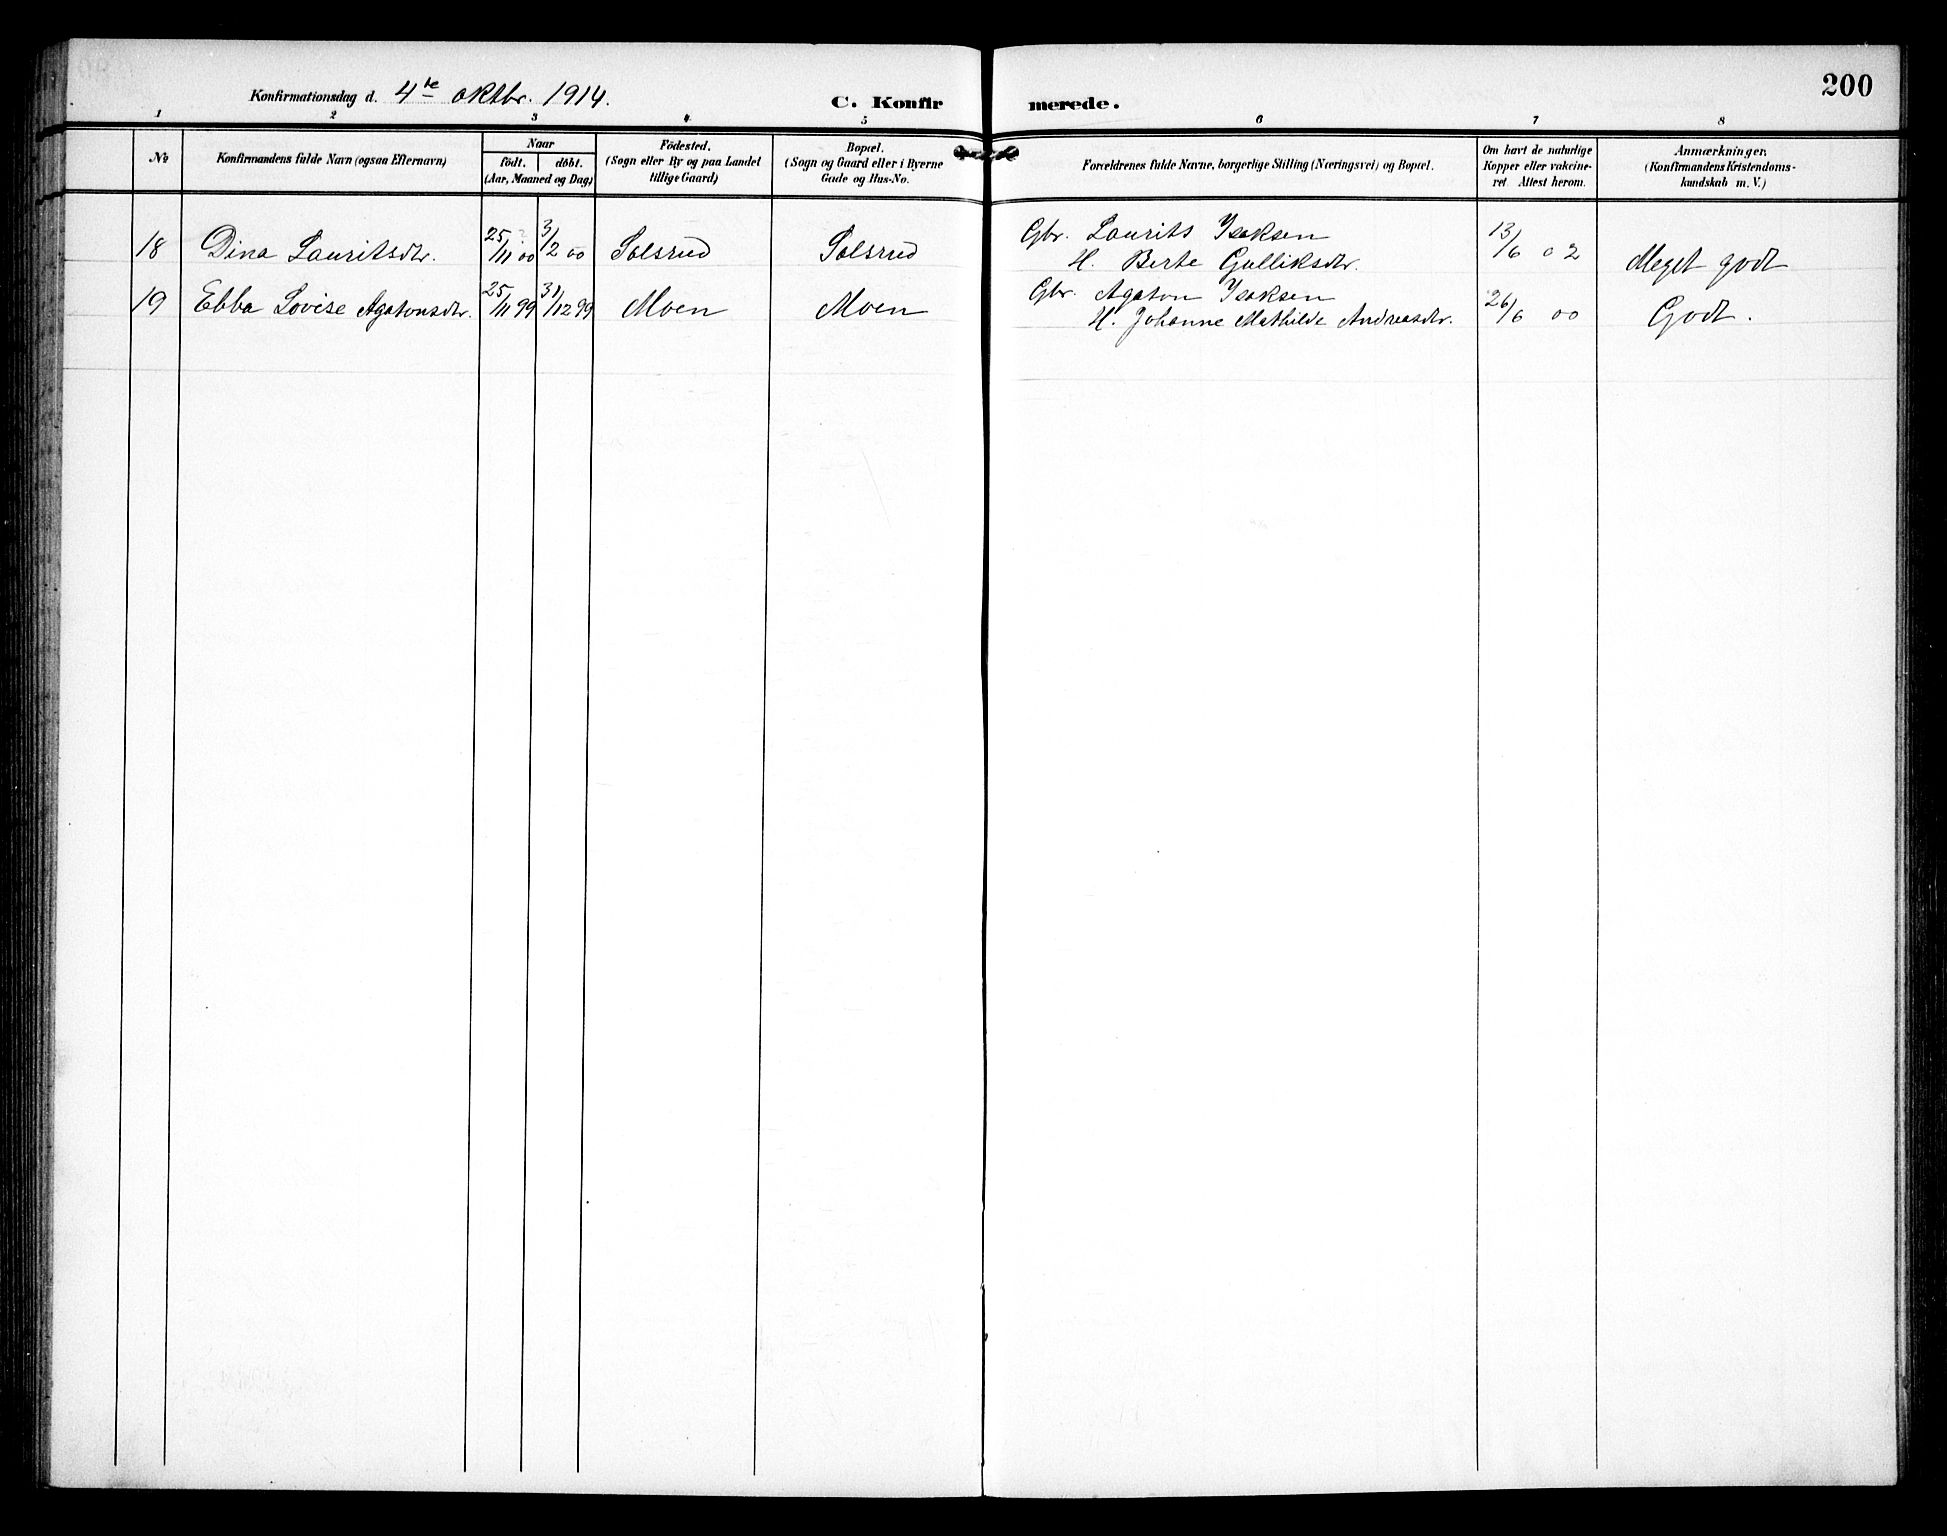 200
Konfirmationsdag d. 4de oktbr. 1914.
C. Konfirmerede.
1 2 3 4 5 6 7 8
No
Konfirmandens fulde Navn (ogsaa Efternavn)
Naar
födt. döbt.
(Aar, Maaned og Dag)
Födested.
(Sogn eller By og paa Landet
tillige Gaard)
Bopæl.
(Sogn og Gaard eller i Byerne
Gade og Hus-No.
Forældrenes fulde Navne, borgerlige Stilling (Næringsvei) og Bopæl.
Om havt de naturlige
Kopper eller vakcine-
ret Attest herom.
Anmærkninger.
(Konfirmandens Kristendoms-
kundskab m. V.)
18 Dina Lauritsdtr. 25/11 00 3/2 00 Solsrud Solsrud Gbr. Laurits Isaksen 13/6 02 Meget godt
H. Berte Gulliksdtr.
19 Ebba Lovise Agatonsdtr. 25/11 99 31/12 99 Moen Moen Gbr. Agaton Isaksen 26/6 00 Godt.
H. Johanne Mathilde Andreasdtr.